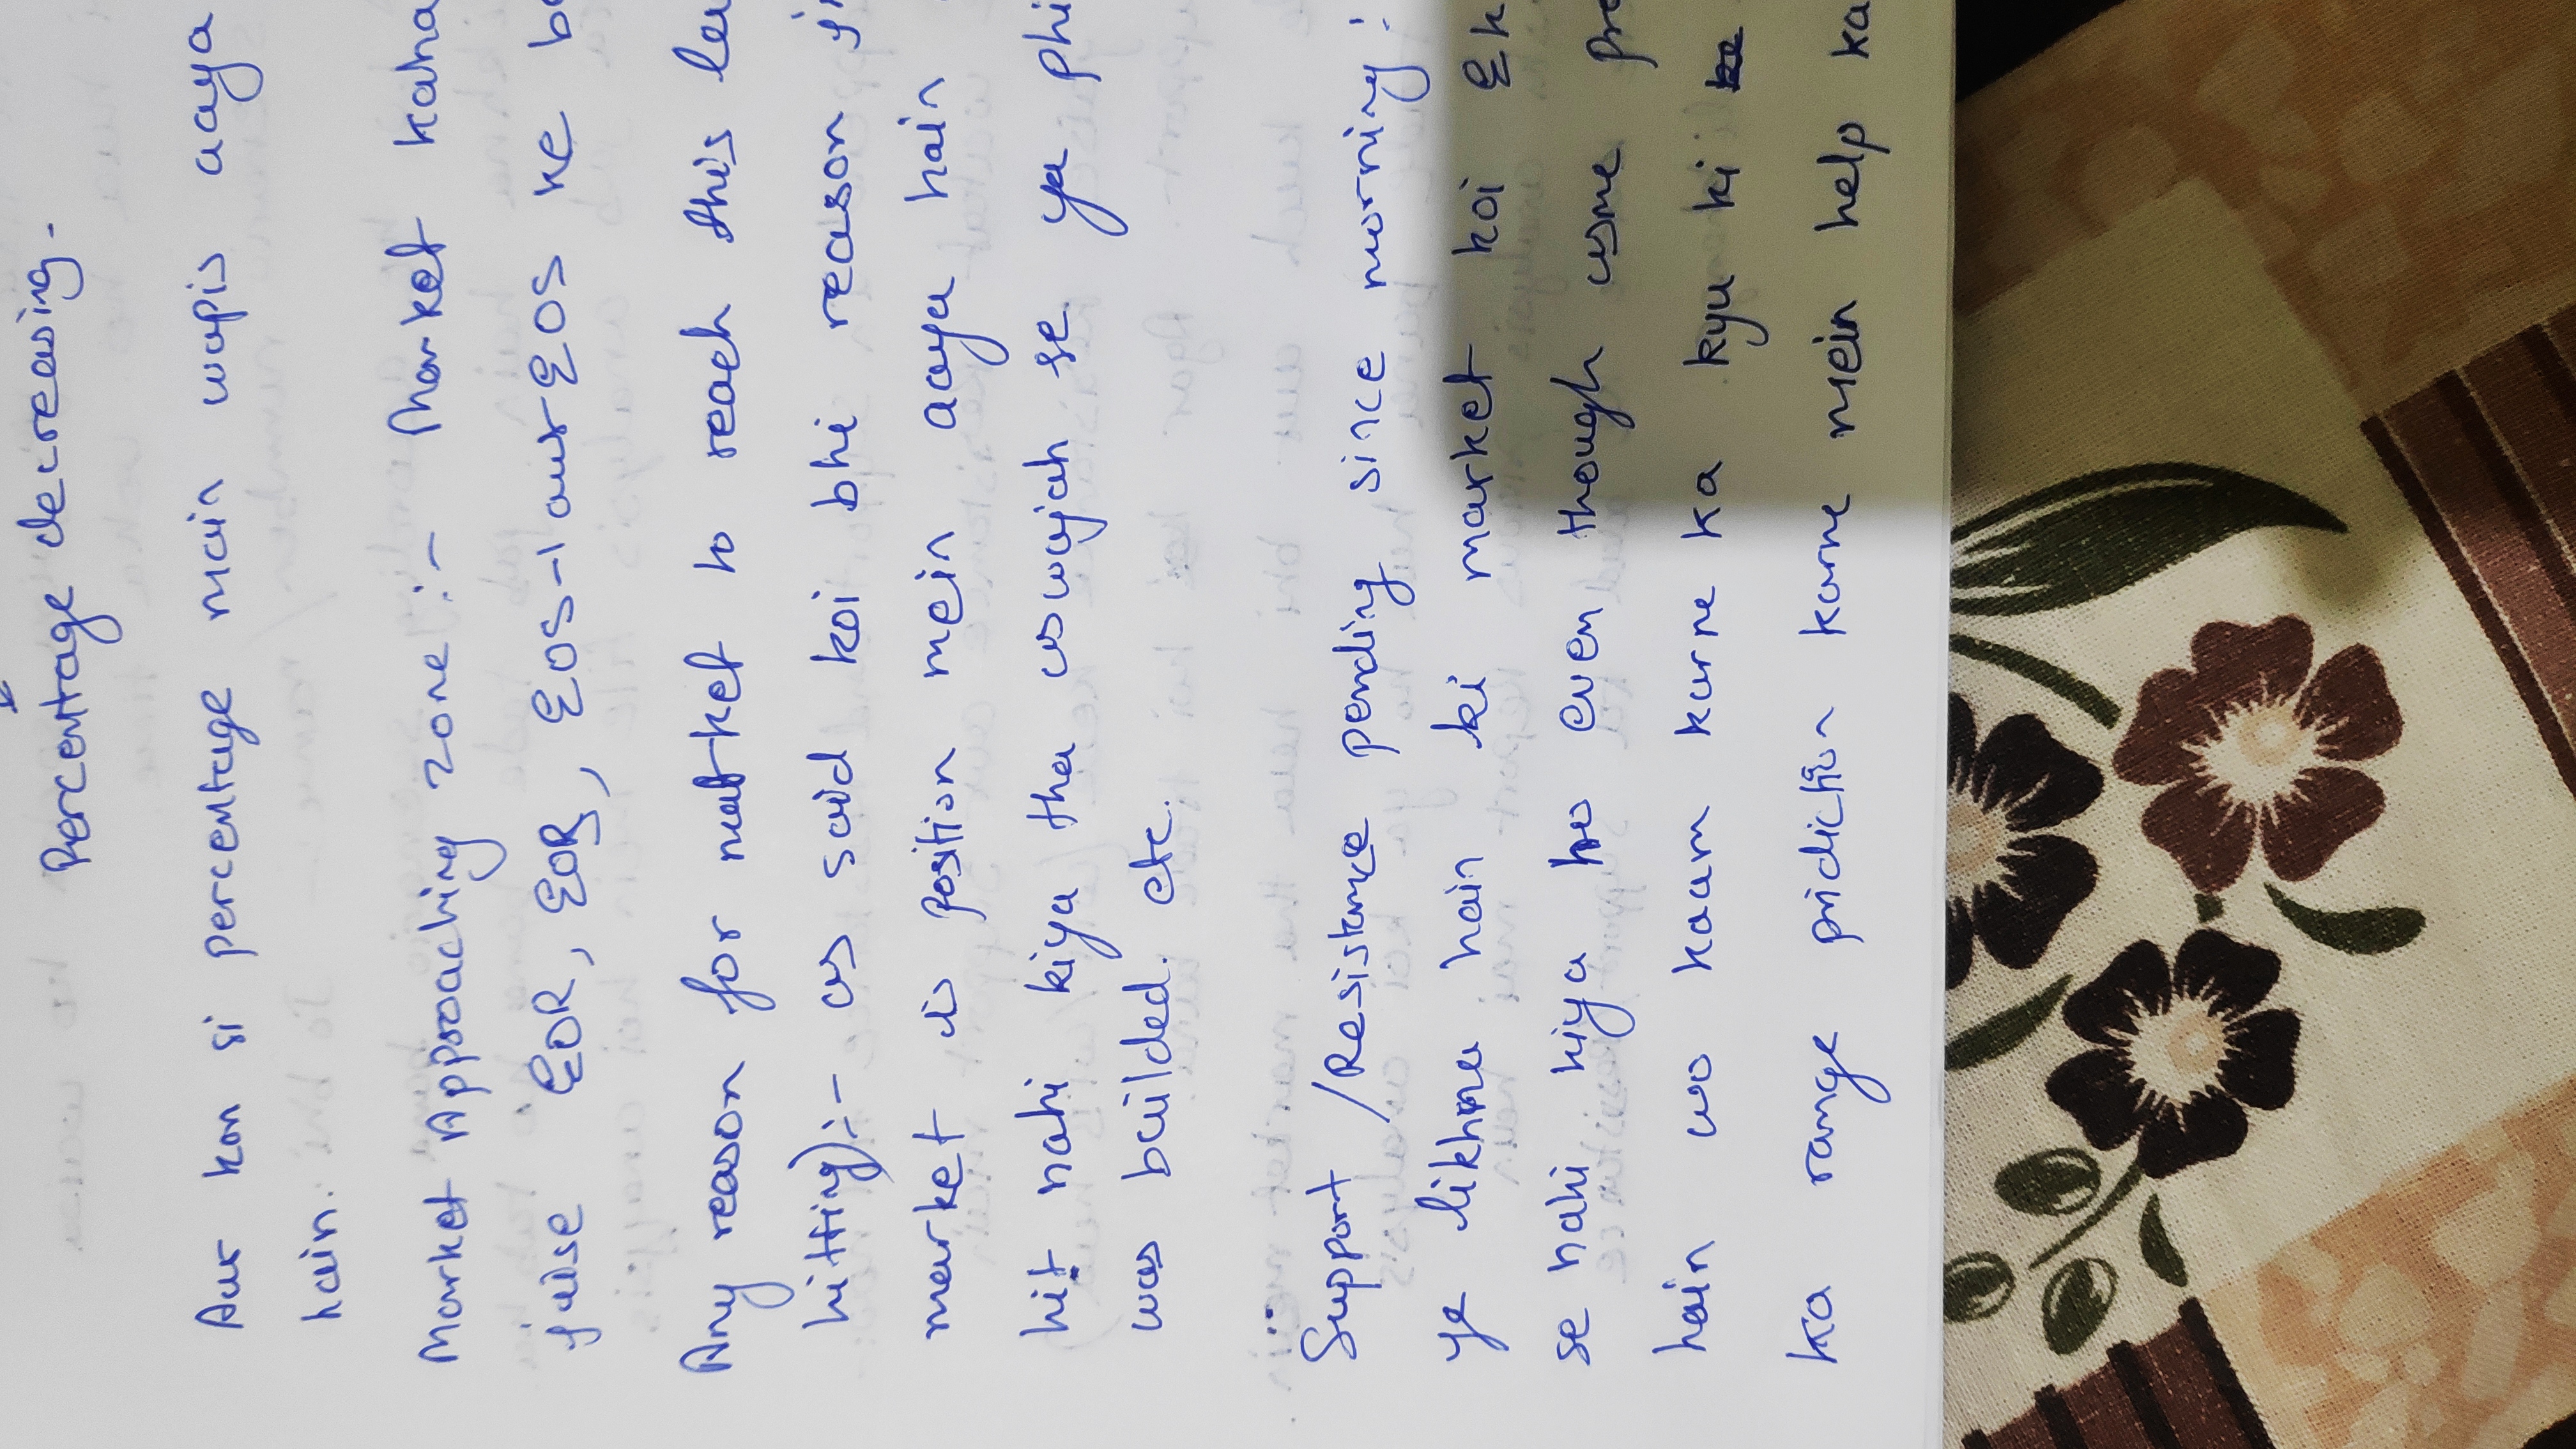 Percentage decreasing -
Aur kon si percentage main wapis aaya
hain.
Market Approaching zone :- Market kaha
jaise EOR, EOR, EOS-1 aur EOS ke
Any reason for market to reach this
hitting):- as said koi bhi reason
market is position mein aaya hain
hit nahi kiya tha uswajah se ya
was builded. etc.
Support /Resistance pending since morning :
ye likhna hain ki market koi
se nahi kiya ho even though usme
hain wo kaam karne ka kyu ki
ka range pridiction karne mein help ka